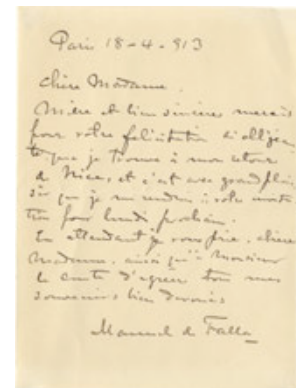 Paris 18-4-913
Chère Madame,
et bien sincères mercis
pour votre félicitation si obligean
te que je trouve à mon retour
de Nice, et c'est avec grand plai
sir que je me rendrai à votre invita
tion pour lundi prochain.
En attendant je vous prie, chère
Madame, ainsi qu'à Monsieur
le comte d'agréer tous mes
souvenirs bien dévoués
Manuel de Falla